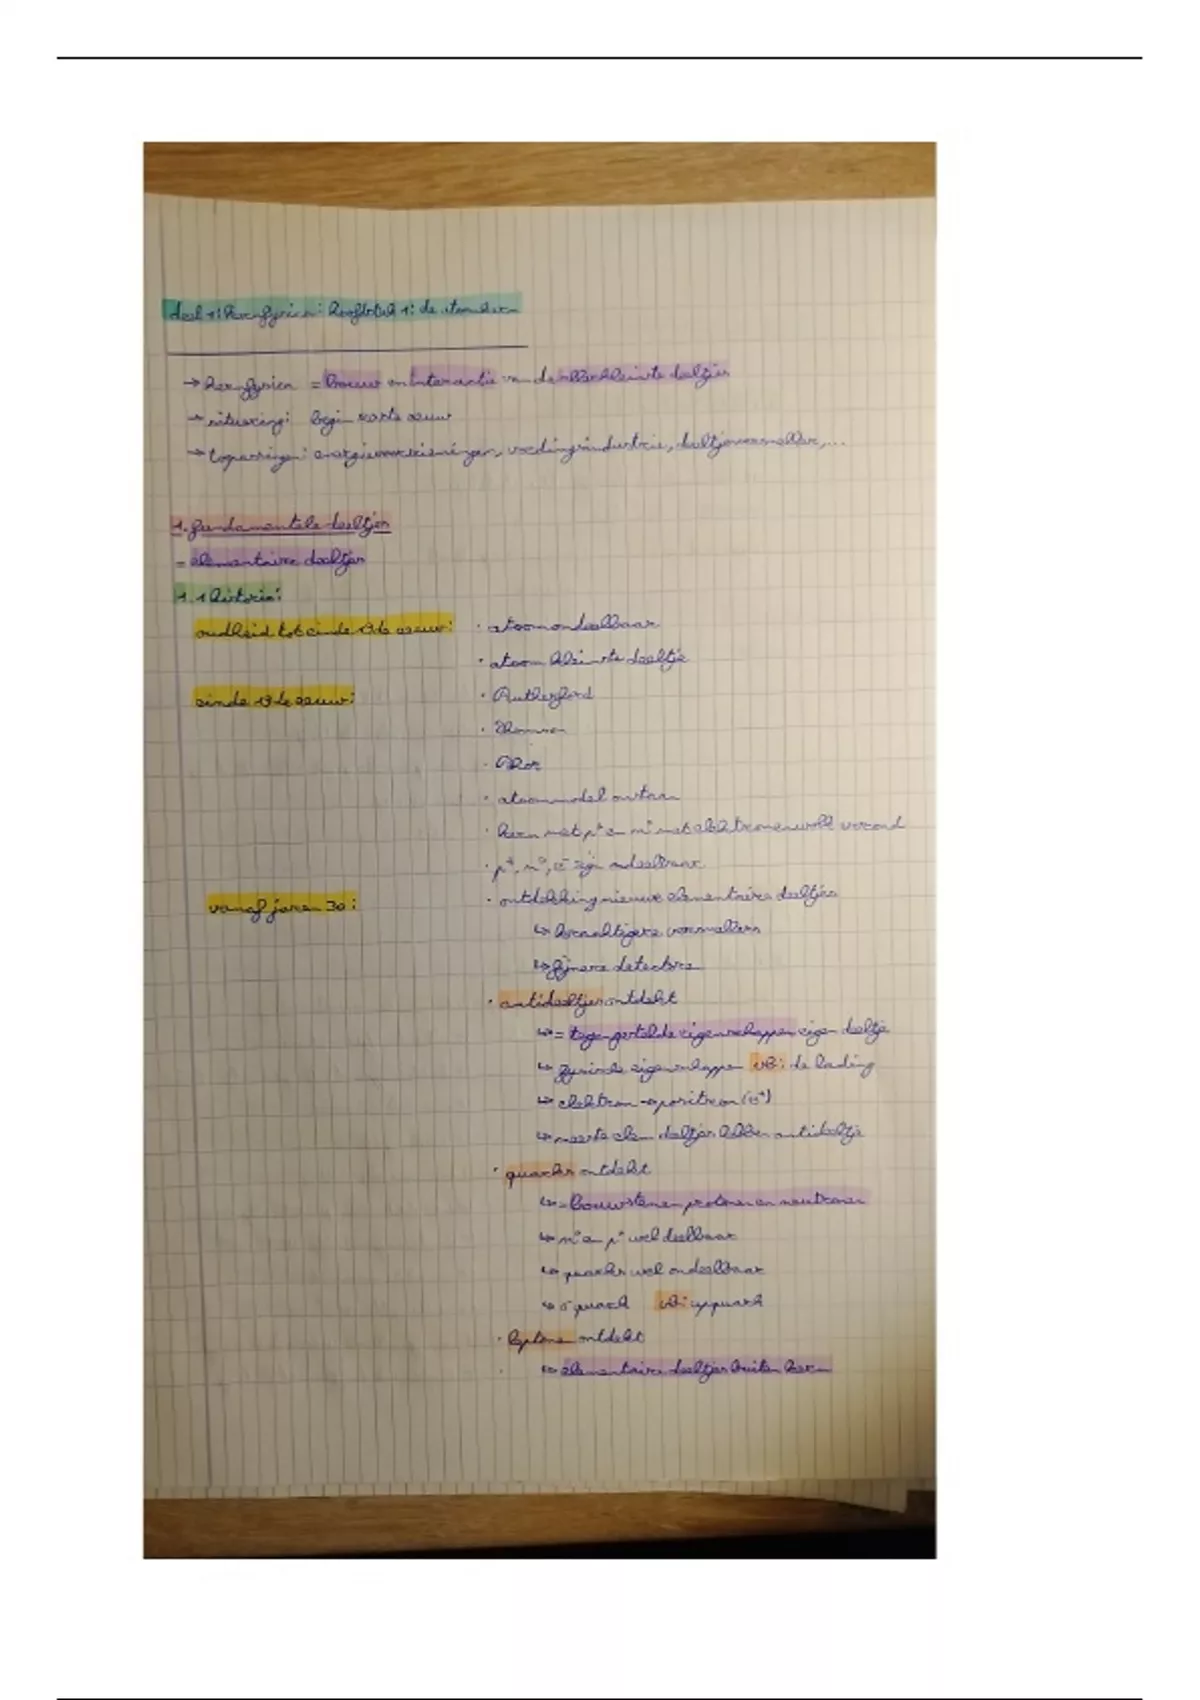 deel 1: kernfysica: hoofdstuk 1: de atoomkern
→ kernfysica = bouw en interactie van de allerkleinste deeltjes
→ situering: begin 20ste eeuw
→ toepassingen: energievoorzieningen, voedingsindustrie, deeltjesversneller, ...
1. fundamentele deeltjes
= elementaire deeltjes
1.1 historie:
oudheid tot einde 19de eeuw: · atoom ondeelbaar
· atoom kleinste deeltje
einde 19de eeuw: · Rutherford
· Thomson
· Bhor
· atoommodel ontstaan
· kern met p⁺ en n⁰ met elektronenwolk rond
· p⁺, n⁰, e⁻ zijn ondeelbaar
vanaf jaren 30: · ontdekking nieuwe elementaire deeltjes
↳ krachtigere versnellers
↳ fijnere detectors
· antideeltjes ontdekt
↳ = tegengestelde eigenschappen eigen deeltje
↳ fysische eigenschappen vb: de lading
↳ elektron → positron (e⁺)
↳ meeste elem deeltjes hebben antideeltje
· quarks ontdekt
↳ = bouwstenen protonen en neutronen
↳ n⁰ en p⁺ wel deelbaar
↳ quarks wel ondeelbaar
↳ 6 quark vb: upquark
· leptonen ontdekt
↳ elementaire deeltjes buiten kern